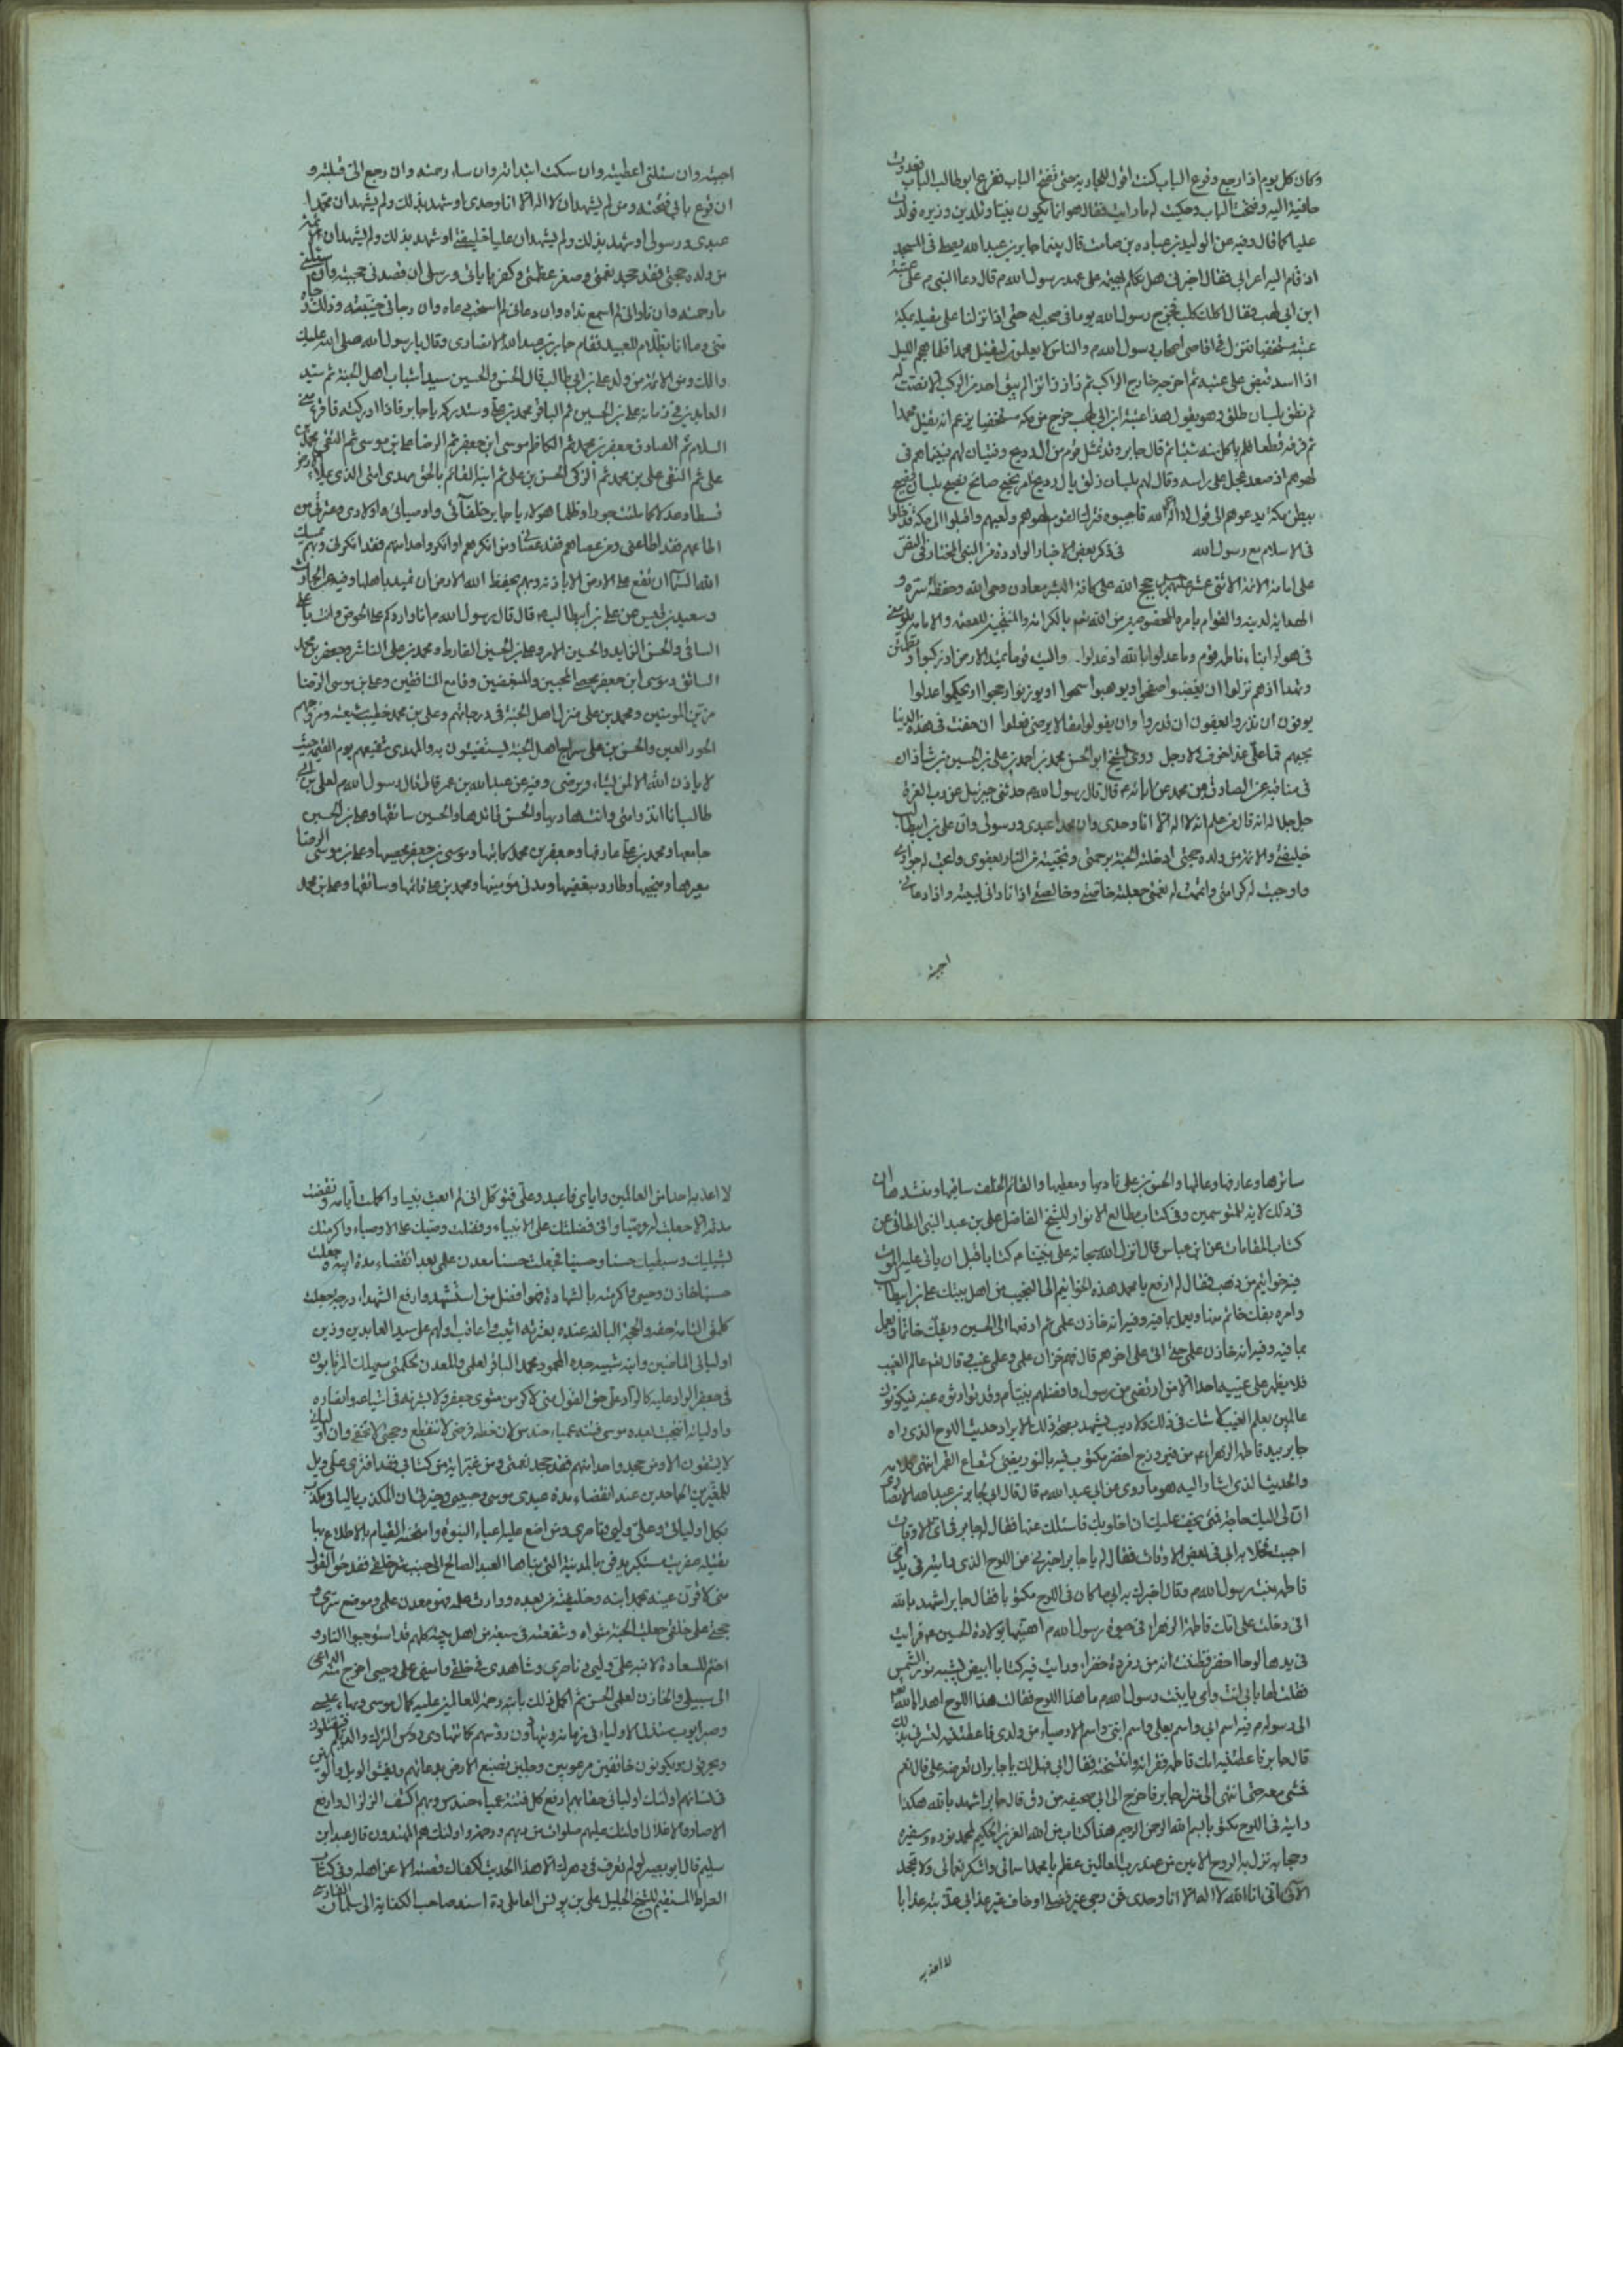 وكان كل يوم اذا رجع وفرع الباب كنت اقول للجارية حتى تفتح الباب ففرع ابو طالب الباب فعدوت
حافية اليه وفتحت الباب وحكيت له ما رايت فقال هو انما يكون نبيا وتلدين وزيره فولدت
عليا كما قال وفيه عن الوليد بن عباده بن صامت قال بينما جابر بن عبد الله يعظ فى المسجد
اذ قام اليه اعرابي فقال اخبرنى هل تكلم بهيمة على عهد رسول الله ص قال دعا النبى ص على عتبة
ابن ابى لهب فقال اكلك كلب فخرج رسول الله يوما فى صحب له حتى اذا نزلنا على مكة
عتبة مستخفيا فنزل فى اقاصى اصحاب رسول الله ص والناس لا يعلمون ليقتل محمدا فلما هجم الليل
اذا اسد قبض على عتبة ثم اخرجه خارج الراكب ثم زار لم يبق احد من الركب الا نصت له
ثم نطق بلسان طلق وهو يقول هذا عتبة ابن ابى لهب خرج من مكة مستخفيا يزعم انه يقتل محمدا
ثم فرقه قطعا فلم ياكل منه شيئا ثم قال جابر وقد تمثل قوم من ال ذريح وفتيان لهم بينما هم فى
لهوهم اذ صعد عجل على رابية وقال لهم بلسان ذلق يال ذريح امر نجيح صائح يصيح بلسان فصيح
ببطن مكة يدعوهم الى قول لا اله الا الله فاجيبوه فترك القوم لهوهم ولعبهم واقبلوا الى مكة فدخلوا
فى الاسلام مع رسول الله فى ذكر بعض الاخبار الواردة من النبى المختار فى النص
على امامة الائمة الاثنى عشر حجج الله على كافة البشر معادن وحى الله وحفظة سره و
الهداية لدينه والقوام بامره المخصوصين من الله
يوفون ان نذروا يعفون ان قدروا وان يقولوا مقالا يرضى فعلوا ان خفت فى هذه الدنيا
بحبهم فما على غدا خوف ولا وجل وروى الشيخ ابو الحسن محمد بن احمد بن على بن الحسين بن شاذان
فى مناقبه عن الصادق بن محمد عن ابائه ع قال قال رسول الله ص حدثنى جبرئيل عن رب العزة
جل جلاله انه قال من علم انه لا اله الا انا وحدى وان محمدا عبدى ورسولى وان على بن ابيطالب
خليفتى والائمة من ولده حججى ادخلته الجنة برحمتى ونجيته من النار بعفوى وابحت له جوارى
واوجبت له كرامتى واتممت له نعمتى وجعلته خاصتى وخالصتى اذا نادانى لبيته واذا دعانى
اجبته
اجبته وان سئلنى اعطيته وان سكت ابتدائه وان ساء رحمته وان رجع الى قبلته و
ان قرع بابى فتحته ومن لم يشهد ان لا اله الا انا وحدى او شهد بذلك ولم يشهد ان محمدا
عبدى ورسولى او شهد بذلك ولم يشهد ان عليا خليفتى او شهد بذلك ولم يشهد ان الائمة
من ولده حججى فقد جحد نعمتى وصغر عظمتى وكفر باياتى ورسلى ان قصدنى حجبته وان سئلنى
ما رحمته وان نادانى لم اسمع نداه وان دعانى لم استجب دعاه وان رجانى خيبته وذلك جزاه
منى وما انا بظلام للعبيد فقام جابر بن عبد الله الانصارى وقال يا رسول الله صلى الله عليك
والك ومن الائمة من ولد على بن ابى طالب قال الحسن والحسين سيدا شباب اهل الجنة ثم سيد
العابدين فى زمانه على بن الحسين ثم الباقر محمد بن على وستدركه يا جابر فاذا ادركته فاقرئه منى
السلام ثم الصادق جعفر بن محمد ثم الكاظم موسى ابن جعفر ثم الرضا على بن موسى ثم التقى محمد بن
على ثم النقى على بن محمد ثم الزكى الحسن بن على ثم ابنه القائم بالحق مهدى امتى الذى يملاء الارض
قسطا وعدلا كما ملئت جورا وظلما هولاء يا جابر خلفائى واوصيائى واولادى وعترتى من
اطاعهم فقد اطاعنى ومن عصاهم فقد عصانى ومن انكرهم او انكر واحدا منهم فقد انكرنى وبهم يمسك
الله السماء ان تقع على الارض الا باذنه وبهم يحفظ الله الارض ان تميد باهلها وفيه عن الحارث
وسعيد بن قيس عن على بن ابيطالب ع قال قال رسول الله ص انا واردكم على الحوض وانت يا على
الساقى والحسن الذايد والحسين الامر وعلى بن الحسين الفارط ومحمد بن على الناشر وجعفر بن محمد
السائق وموسى ابن جعفر محصى المحبين والمبغضين وقامع المنافقين وعلى بن موسى الرضا
مزين المومنين ومحمد بن على منزل اهل الجنة فى درجاتهم وعلى بن محمد خطيب شيعته ومزوجهم
الحور العين والحسن بن على سراج اهل الجنة يستضيئون به والمهدى شفيعهم يوم القيمة حيث
لا ياذن الله الا لمن يشاء ويرضى وفيه عن عبد الله بن عمر قال قال رسول الله ص لعلى بن ابى
طالب انا نذير امتى وانت هاديها والحسن قائدها والحسين سائقها وعلى بن الحسين
جامعها ومحمد بن على عارفها وجعفر بن محمد كاتبها وموسى بن جعفر محصيها وعلى بن موسى الرضا
معبرها ومنجيها وطارد مبغضيها ومدنى مؤمنيها ومحمد بن على قائمها وسائقها وعلى بن محمد
سائرها وعارفها وعالمها والحسن بن على ناديها ومعطيها والقائم الخلف ساقيها ومنشدها ان
فى ذلك لاية للمتوسمين وفى كتاب مطالع الانوار للشيخ الفاضل على بن عبد النبى الطائى عن
كتاب المقامات عن ابن عباس قال انزل الله سبحانه على نبينا ص كتابا قبل ان ياتى عليه الموت
فيه خواتيم من ذهب فقال له ادفع يا محمد هذه الخواتيم الى النجيب من اهل بيتك على بن ابيطالب
وامره يفك خاتم منها ويعمل بما فيه وفيه انه خازن علمى ثم ادفعها الى الحسين ويفك خاتما ويعمل
بما فيه وفيه انه خازن علمى حتى اتى على اخرهم قال فهم خزان علمى وعلى غيبى قال نعم عالم الغيب
فلا يظهر على غيبه احدا الا من ارتضى من رسول وافضلهم نبينا ص وقد توارثوه عنه فيكونون
عالمين بعلم الغيب لا شك فى ذلك ولا ريب يشهد بصحة ذلك الايراد حديث اللوح الذى راه
جابر بيد فاطمة الزهراء ع من زمرد اخضر مكتوب فيه بالنور يضئ كشعاع القمر انتهى كلامه
والحديث الذى اشار اليه هو ما روى عن ابى عبد الله ع قال قال ابى لجابر بن عبد الله الانصارى
ان لى اليك حاجة فمتى يخف عليك ان اخلو بك فاسئلك عنها فقال له جابر فى اى الاوقات
احببت فخلا به ابى فى بعض الاوقات فقال له يا جابر اخبرنى عن اللوح الذى رايته فى يد امى
فاطمة بنت رسول الله ص وما اخبرتك به امى ما كان فى اللوح مكتوبا فقال جابر اشهد بالله
انى دخلت على امك فاطمة الزهراء فى حيوة رسول الله ص اهنيها بولادة الحسين ع فرايت
فى يدها لوحا اخضر فظننت انه من زمردة خضراء ورايت فيه كتابا ابيض يشبه نور الشمس
فقلت لها بابى انت وامى يا بنت رسول الله ص ما هذا اللوح فقالت هذا اللوح اهداه الله
الى رسوله ص فيه اسم ابى واسم بعلى واسم ابنى واسم الاوصياء من ولدى فاعطانيه ليسرنى بذلك
قال جابر فاعطتنيه امك فاطمة فقراته وانتسخته فقال ابى فهل لك يا جابر ان تعرضه على قال نعم
فمشى معه حتى انتهى الى منزل جابر فاخرج الى ابى صحيفة من رق قال جابر اشهد بالله هكذا
رايته فى اللوح مكتوبا بسم الله الرحمن الرحيم هذا كتاب من الله العزيز الحكيم لمحمد نوره وسفيره
وحجابه نزل به الروح الامين من عند رب العالمين عظم يا محمد اسمائى واشكر نعمائى ولا تجحد
الائى انى انا الله لا اله الا انا وحدى فمن رجى غير فضلى او خاف غير عذابى عذبته عذابا
لا اعذبه
لا اعذبه احدا من العالمين واياى فاعبد وعلى فتوكل انى لم ابعث نبيا واكملت ايامه وانقضت
مدته الا جعلت له وصيا وانى فضلتك على الانبياء وفضلت وصيك على الاوصياء واكرمتك
بشبليك وسبطيك حسنا وحسينا فجعلت حسنا معدن علمى بعد انقضاء مدة ابيه وجعلت
حسينا خازن وحيى واكرمته بالشهادة فهو افضل من استشهد وارفع الشهداء درجة جعلت
كلمتى التامة معه والحجة البالغة عنده بعترته اثيب واعاقب اولهم على سيد العابدين وزين
اوليائى الماضين وابنه شبيه جده المحمود محمد الباقر لعلمى والمعدن لحكمتى سيهلك المرتابون
فى جعفر الراد عليه كالراد على حق القول منى لاكرمن مثوى جعفر ولاسرنه فى اشياعه وانصاره
واوليائه انتجبت بعده موسى فتنة عمياء حندس لان خيط فرضى لا ينقطع وحجتى لا تخفى وان اوليائى
لا يشقون الا ومن جحد واحدا منهم فقد جحد نعمتى ومن غير اية من كتابى فقد افترى على وويل
للمفترين الجاحدين عند انقضاء مدة عبدى موسى وحبيبى وخيرتى ان المكذب بالثامن مكذب
بكل اوليائى وعلى وليى وناصرى ومن اضع عليه اعباء النبوة وامنحه القيام بالاطلاع بها
يقتله عفريت مستكبر يدفن بالمدينة التى بناها العبد الصالح الى جنب شر خلقى فقد حق القول
منى لاقرن عينه بمحمد ابنه وخليفته من بعده ووارث علمه فهو معدن علمى وموضع سرى و
حجتى على خلقى جعلت الجنة مثواه وشفعته فى سبعين من اهل بيته كلهم قد استوجبوا النار و
اختم بالسعادة لابنه على وليى وناصرى والشاهدى فى خلقى وامينى على وحيى اخرج منه الداعى
الى سبيلى والخازن لعلمى الحسن ثم اكمل ذلك بابنه رحمة للعالمين عليه كمال موسى وبهاء عيسى
وصبر ايوب ستذل الاولياء فى زمانه ويتهادون رؤسهم كما تتهادى رؤس الترك والديلم فيقتلون
ويحرقون ويكونون خائفين مرعوبين وجلين تصبغ الارض بدمائهم ويفشو الويل والرنين
فى نسائهم اولئك اوليائى حقا بهم ارفع كل فتنة عمياء حندس وبهم اكشف الزلزال وارفع
الاصار والاغلال اولئك عليهم صلوات من ربهم ورحمة واولئك هم المهتدون قال عبد ابن
سليم قال ابو بصير لو لم تعرف فى دهرك الا هذا الحديث لكفاك فصنه الا عن اهله وفى كتاب
الصراط المستقيم للشيخ الجليل على بن يونس العاملى ره اسند صاحب الكفاية الى سلمان الفارسى